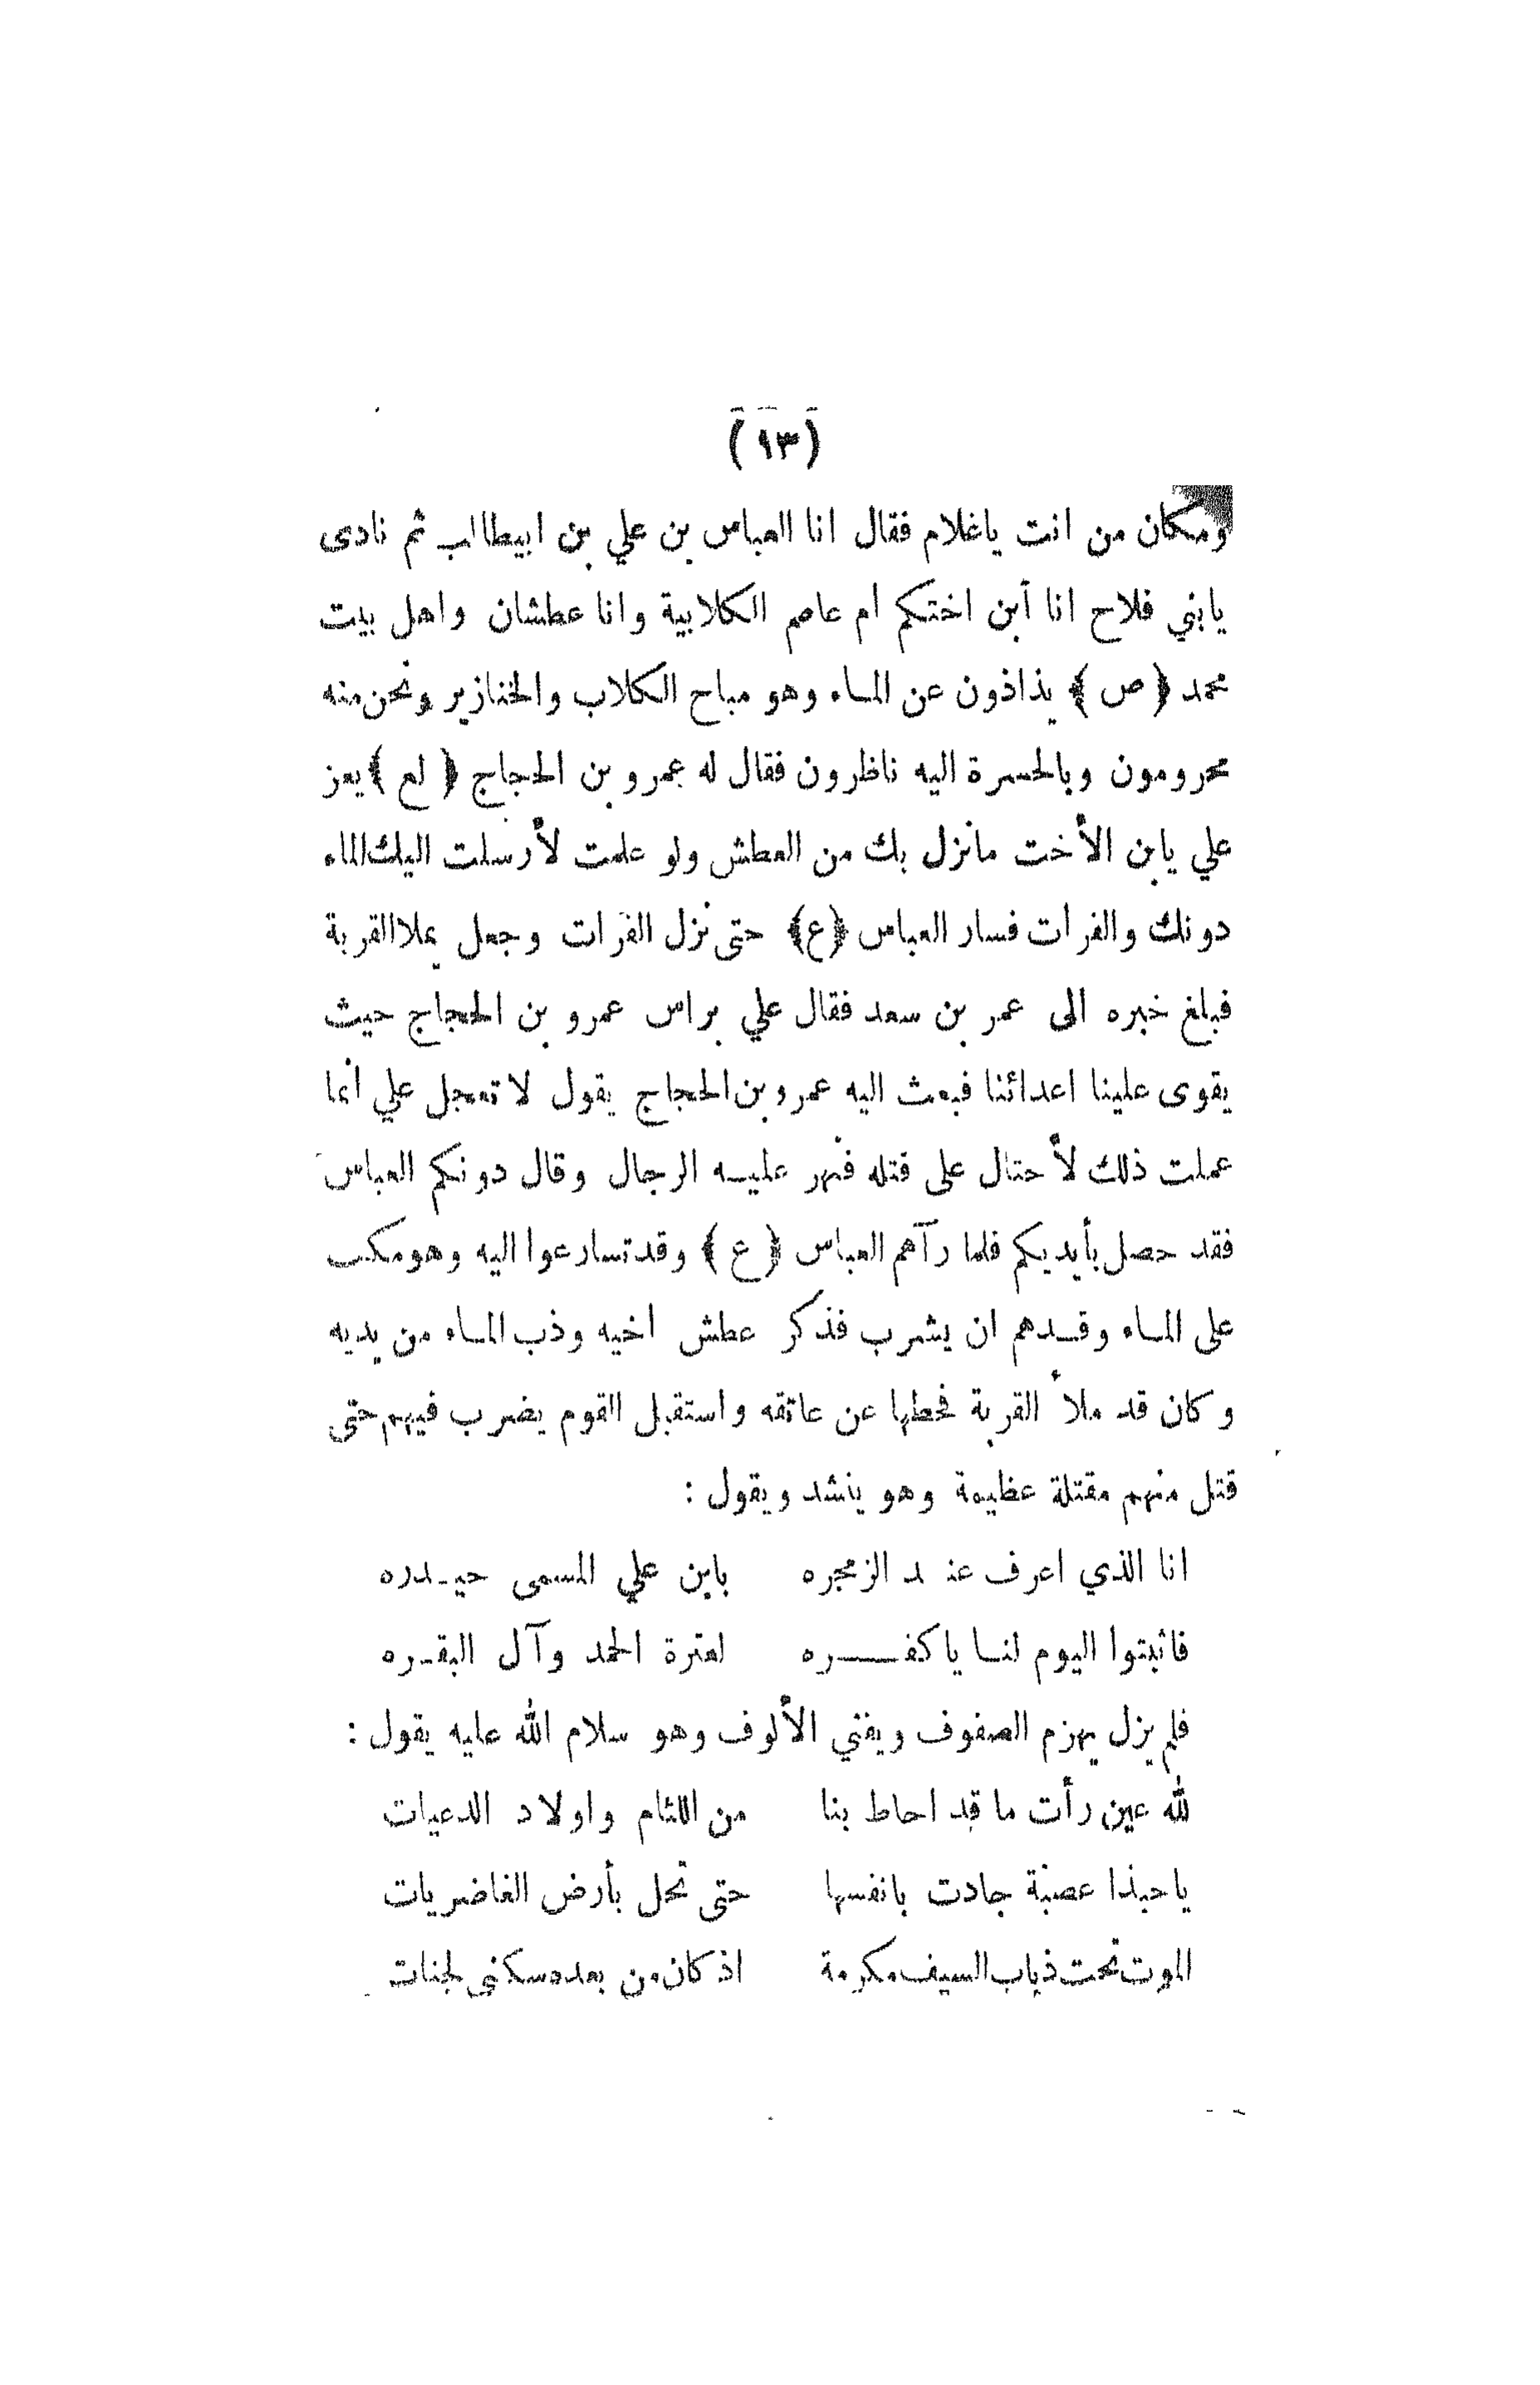 (٩٣)
ومكان من انت ياغلام فقال انا العباس بن علي بن ابيطالب ثم نادى
يابني فلاح انا أبن اختكم ام عاصم الكلابية وانا عطشان واهل بيت
محمد ﴿ص﴾ يذادون عن الماء وهو مباح الكلاب والخنازير ونحن منه
محرومون وبالحسرة اليه ناظرون فقال له عمرو بن الحجاج ﴿لع﴾ يعز
علي يابن الأخت مانزل بك من العطش ولو علمت لأرسلت اليك الماء
دونك والفرات فسار العباس ﴿ع﴾ حتى نزل الفرات وجعل يملا القربة
فبلغ خبره الى عمر بن سعد فقال علي براس عمرو بن الحجاج حيث
يقوى علينا اعدائنا فبعث اليه عمرو بن الحجاج يقول لا تعجل علي أنما
عملت ذلك لأحتال على قتله فنهر عليه الرجال وقال دونكم العباس
فقد حصل بأيديكم فلما رآهم العباس ﴿ع﴾ وقد تسارعوا اليه وهو مكب
على الماء وقد هم ان يشرب فذكر عطش اخيه وذب الماء من يديه
وكان قد ملأ القربة فحطها عن عاتقه واستقبل القوم يضرب فيهم حتى
قتل منهم مقتلة عظيمة وهو ينشد ويقول :
انا الذي اعرف عند الزمجره بابن علي المسمى حيدره
فاثبتوا اليوم لنا يا كفره لعترة الحمد وآل البقره
فلم يزل يهزم الصفوف ويفني الألوف وهو سلام الله عليه يقول :
لله عين رأت ما قد احاط بنا من اللئام واولاد الدعيات
يا حبذا عصبة جادت بانفسها حتى تحل بأرض الغاضريات
الموت تحت ذباب السيف مكرمة اذ كان من بعده سكنى لجنات